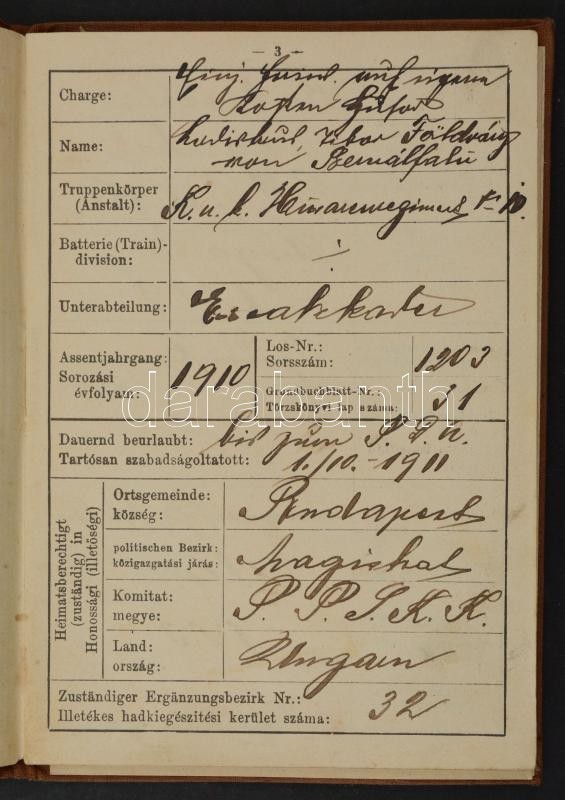 — 3 —
Charge: Einj. Freiw. auf eigene
Kosten Husar
Name: Ladislaus, Tibor Földváry
von Bernátfalu
Truppenkörper
(Anstalt): K. u. k. Husarenregiment Nr 10.
Batterie (Train)-
division: ÷
Unterabteilung: Ersatzkader
Assentjahrgang:
Sorozási
évfolyam: 1910
Los-Nr.:
Sorsszám: 1203
Grundbuchblatt-Nr.:
Törzskönyvi lap száma: 31
darabanth
Dauernd beurlaubt: bis zum P. D. A.
Tartósan szabadságoltatott: 1./10.-1911
Heimatsberechtigt
(zuständig) in
Honossági (illetőségi)
Ortsgemeinde:
község: Budapest
politischen Bezirk:
közigazgatási járás: Magistrat
Komitat:
megye: P. P. S. K. K.
Land:
ország: Ungarn
Zuständiger Ergänzungsbezirk Nr.:
Illetékes hadkiegészitési kerület száma: 32